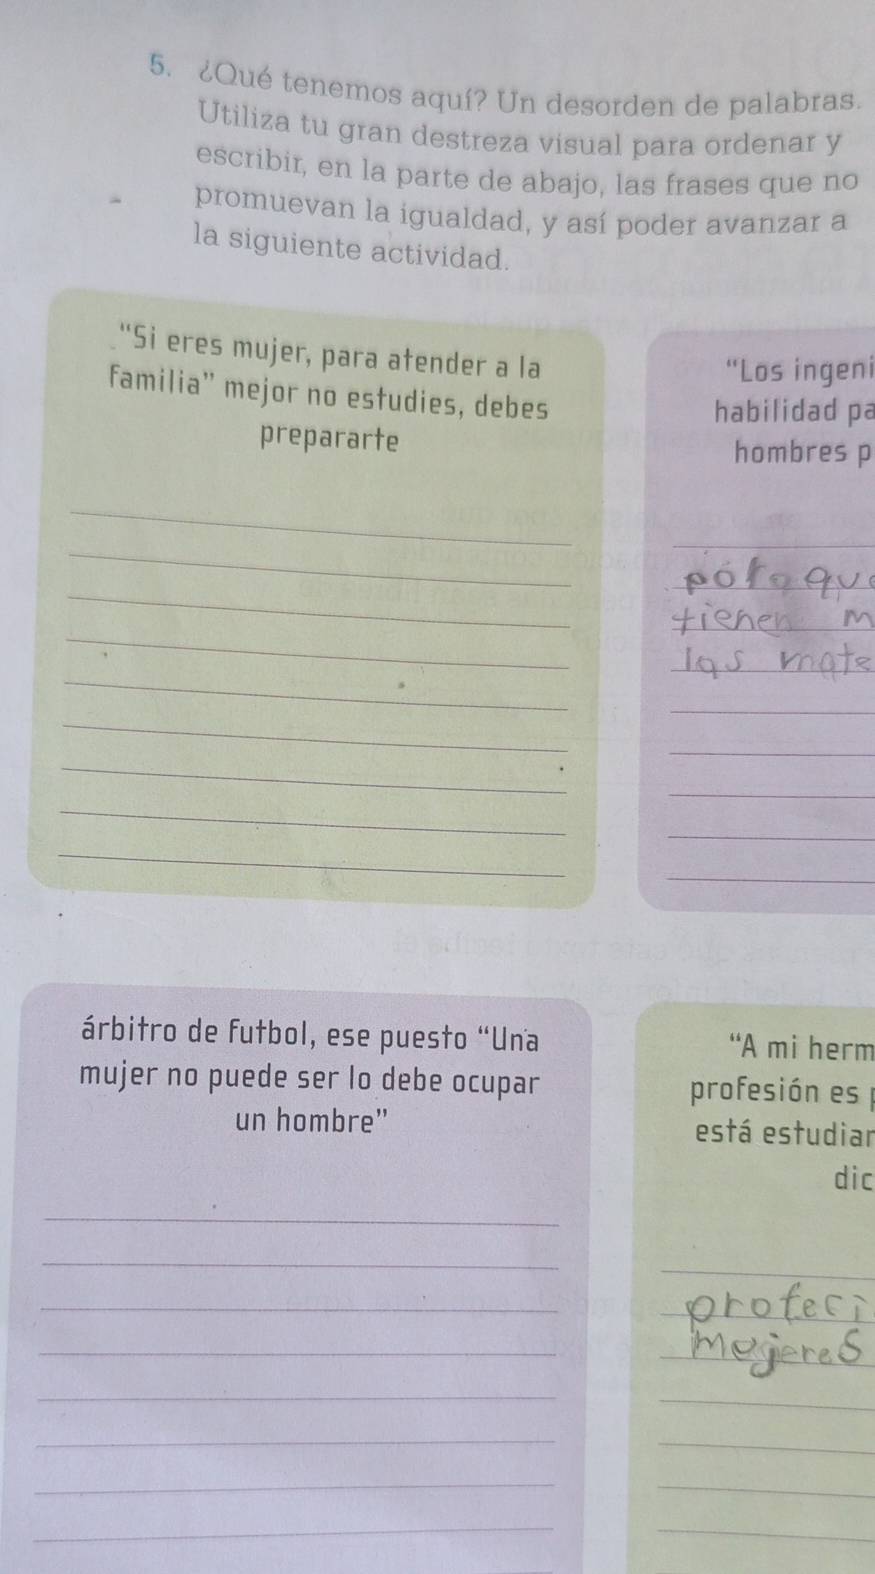 5. ¿Qué tenemos aquí? Un desorden de palabras.
Utiliza tu gran destreza visual para ordenar y
escribir, en la parte de abajo, las frases que no
promuevan la igualdad, y así poder avanzar a
la siguiente actividad.
"Si eres mujer, para atender a la
familia" mejor no estudies, debes
prepararte
"Los ingeni
habilidad pa
hombres p
tienen m
las mate
árbitro de futbol, ese puesto "Una
mujer no puede ser lo debe ocupar
un hombre"
"A mi herm
profesión es p
está estudiar
dic
profeci
mejeres